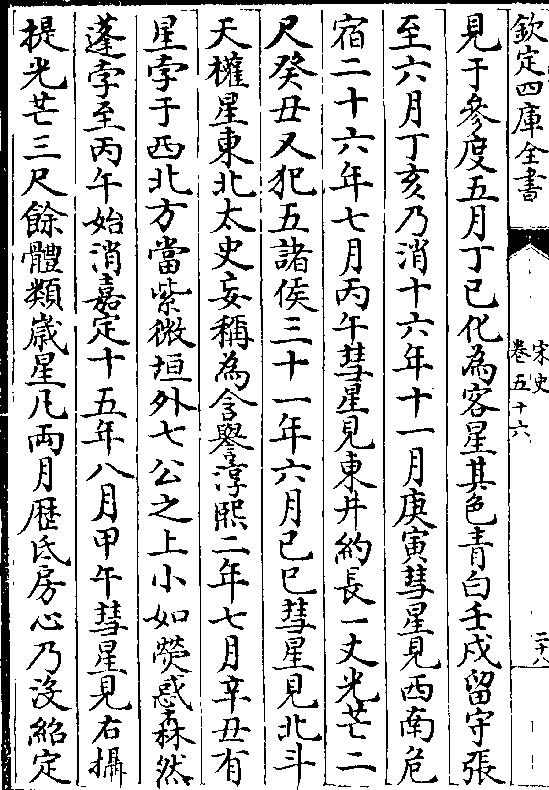 欽定四庫全書
宋史
卷五十六
二十八
見于參度五月丁巳化為客星其色青白壬戌留守張
至六月丁亥乃消十六年十一月庚寅彗星見西南危
宿二十六年七月丙午彗星見東井約長一丈光芒二
尺癸丑又犯五諸侯三十一年六月己巳彗星見北斗
天權星東北太史妄稱為含譽淳熙二年七月辛丑有
星孛于西北方當紫微垣外七公之上小如熒惑森然
蓬孛至丙午始消嘉定十五年八月甲午彗星見右攝
提光芒三尺餘體類歲星凡兩月歷氐房心乃沒紹定